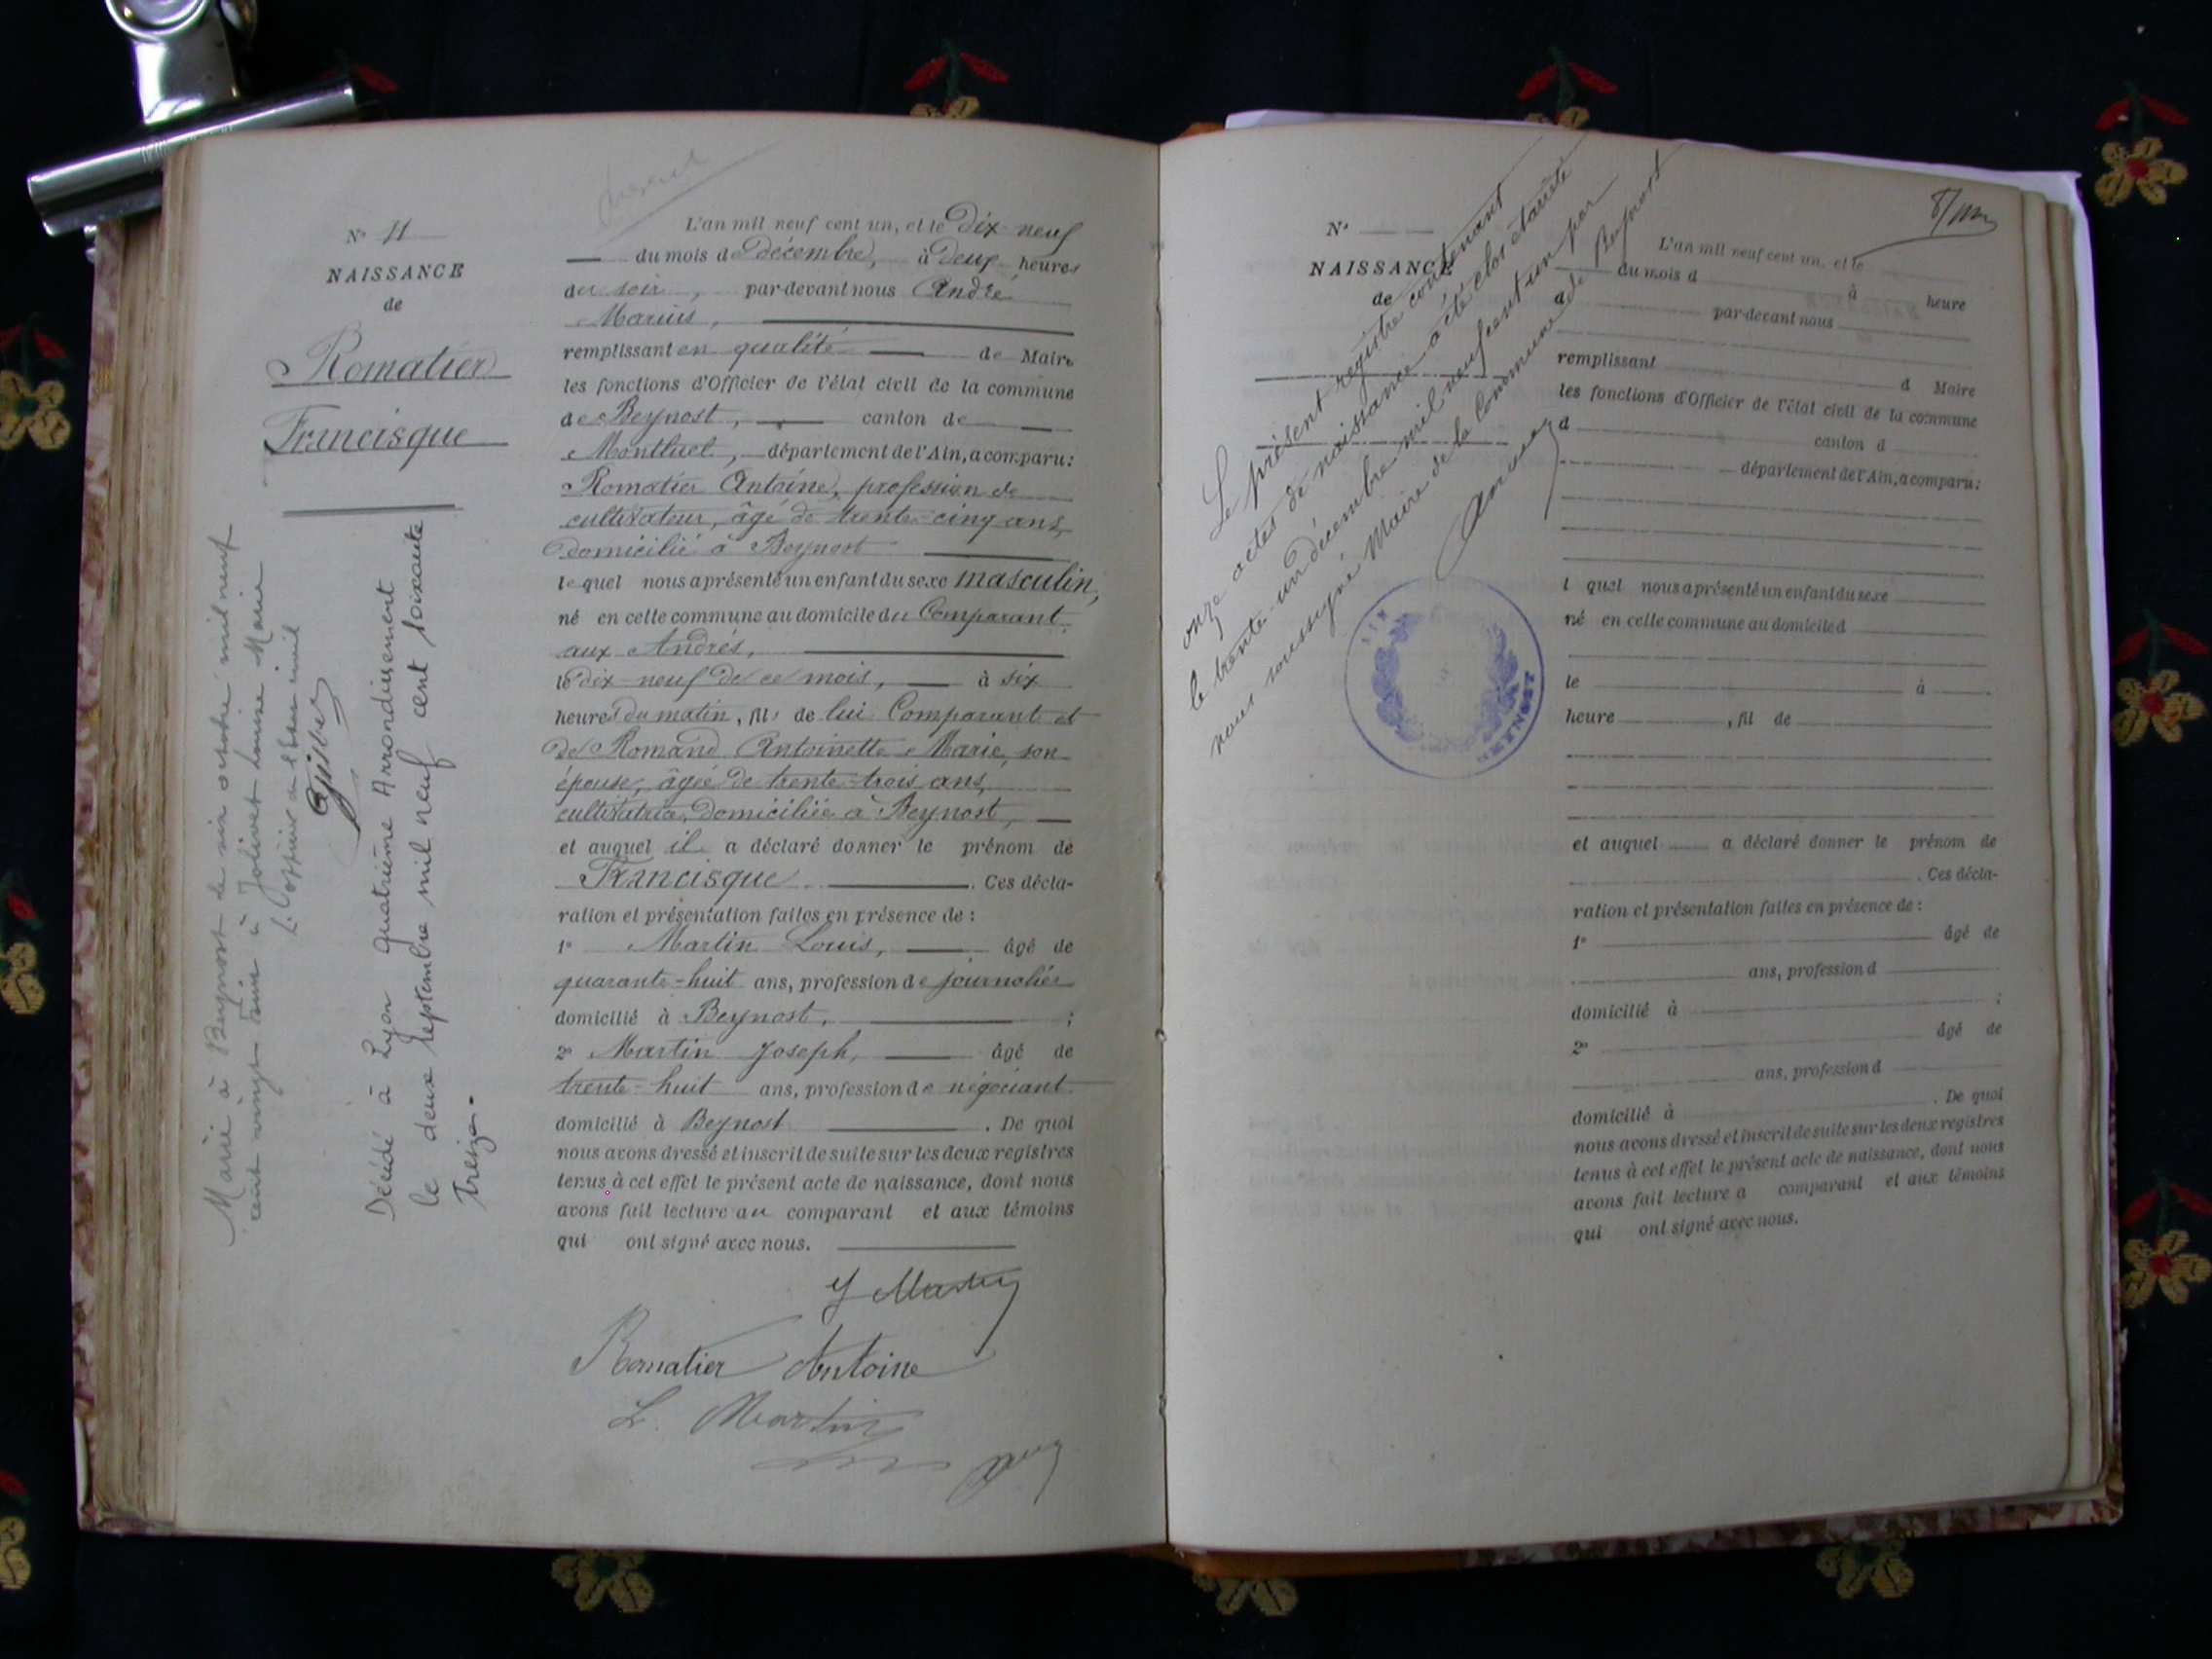 N° 11
NAISSANCE
de
Romatier
Francisque
Marié à Beynost le six octobre mil neuf
cent vingt à Jolivet Louise Marie
L'officier de l'état civil
Décédé à Lyon quatrième Arrondissement
le deux septembre mil neuf cent soixante
treize.
L'an mil neuf cent un, et le Dix neuf
du mois de décembre, à deux heures
du soir, par-devant nous André
Marius,
remplissant en qualité de Maire
les fonctions d'Officier de l'état civil de la commune
de Beynost, canton de
Montluel, département de l'Ain, a comparu:
Romatier Antoine, profession de
cultivateur, âgé de trente-cinq ans,
domicilié à Beynost
lequel nous a présenté un enfant du sexe masculin,
né en cette commune au domicile du Comparant
aux Andrés,
le dix-neuf de ce mois, à six
heures du matin, fils de lui Comparant et
de Romand Antoinette Marie, son
épouse, âgée de trente-trois ans,
cultivatrice, domiciliée à Beynost,
et auquel il a déclaré donner le prénom de
Francisque. Ces décla-
ration et présentation faites en présence de :
1° Martin Louis, âgé de
quarante-huit ans, profession de journalier
domicilié à Beynost, ;
2° Martin Joseph, âgé de
trente-huit ans, profession de négociant
domicilié à Beynost. De quoi
nous avons dressé et inscrit de suite sur les deux registres
tenus à cet effet le présent acte de naissance, dont nous
avons fait lecture au comparant et aux témoins
qui ont signé avec nous.
J Martin
Romatier Antoine
L. Martin
N°
NAISSANCE
de
Le présent registre contenant
onze actes de naissance a été clos et arrêté
le trente-un décembre mil neuf cent un par
nous soussigné Maire de la Commune de Beynost
AIN
BEYNOST
L'an mil neuf cent un, et le
du mois d à heure
d par-devant nous
remplissant d Maire
les fonctions d'Officier de l'état civil de la commune
d canton d
département de l'Ain, a comparu:
l quel nous a présenté un enfant du sexe
né en cette commune au domicile d
le à
heure , fil de
et auquel a déclaré donner le prénom de
. Ces décla-
ration et présentation faites en présence de :
1° âgé de
ans, profession d
domicilié à ;
2° âgé de
ans, profession d
domicilié à . De quoi
nous avons dressé et inscrit de suite sur les deux registres
tenus à cet effet le présent acte de naissance, dont nous
avons fait lecture a comparant et aux témoins
qui ont signé avec nous.